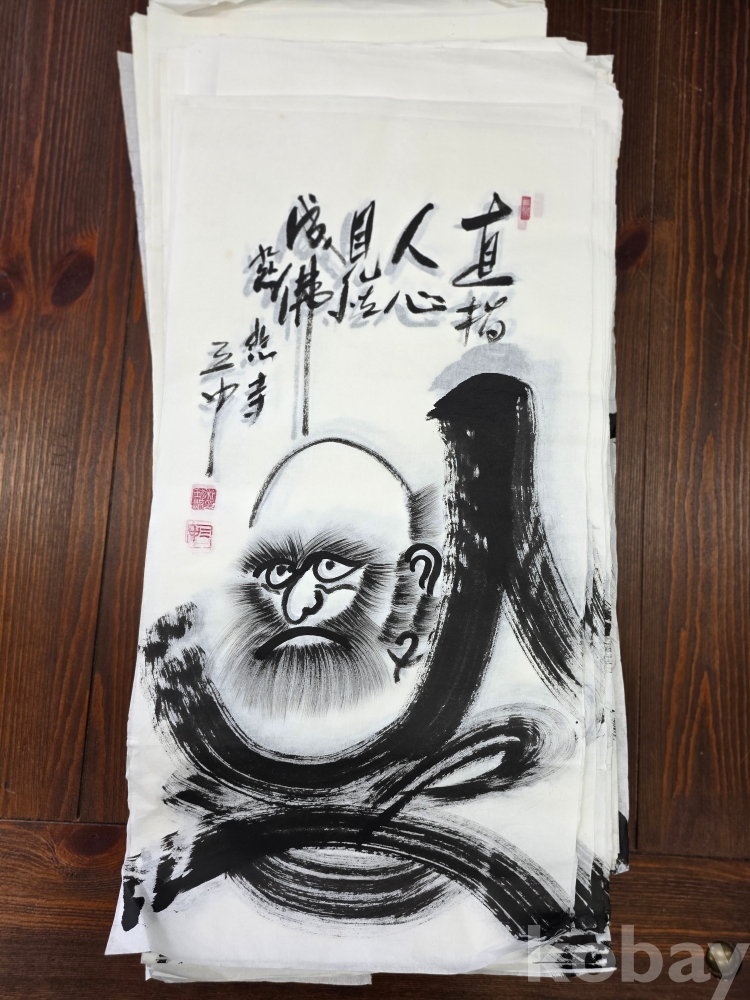 直指
人心
見性
成佛
慈悲寺
三中
kobay